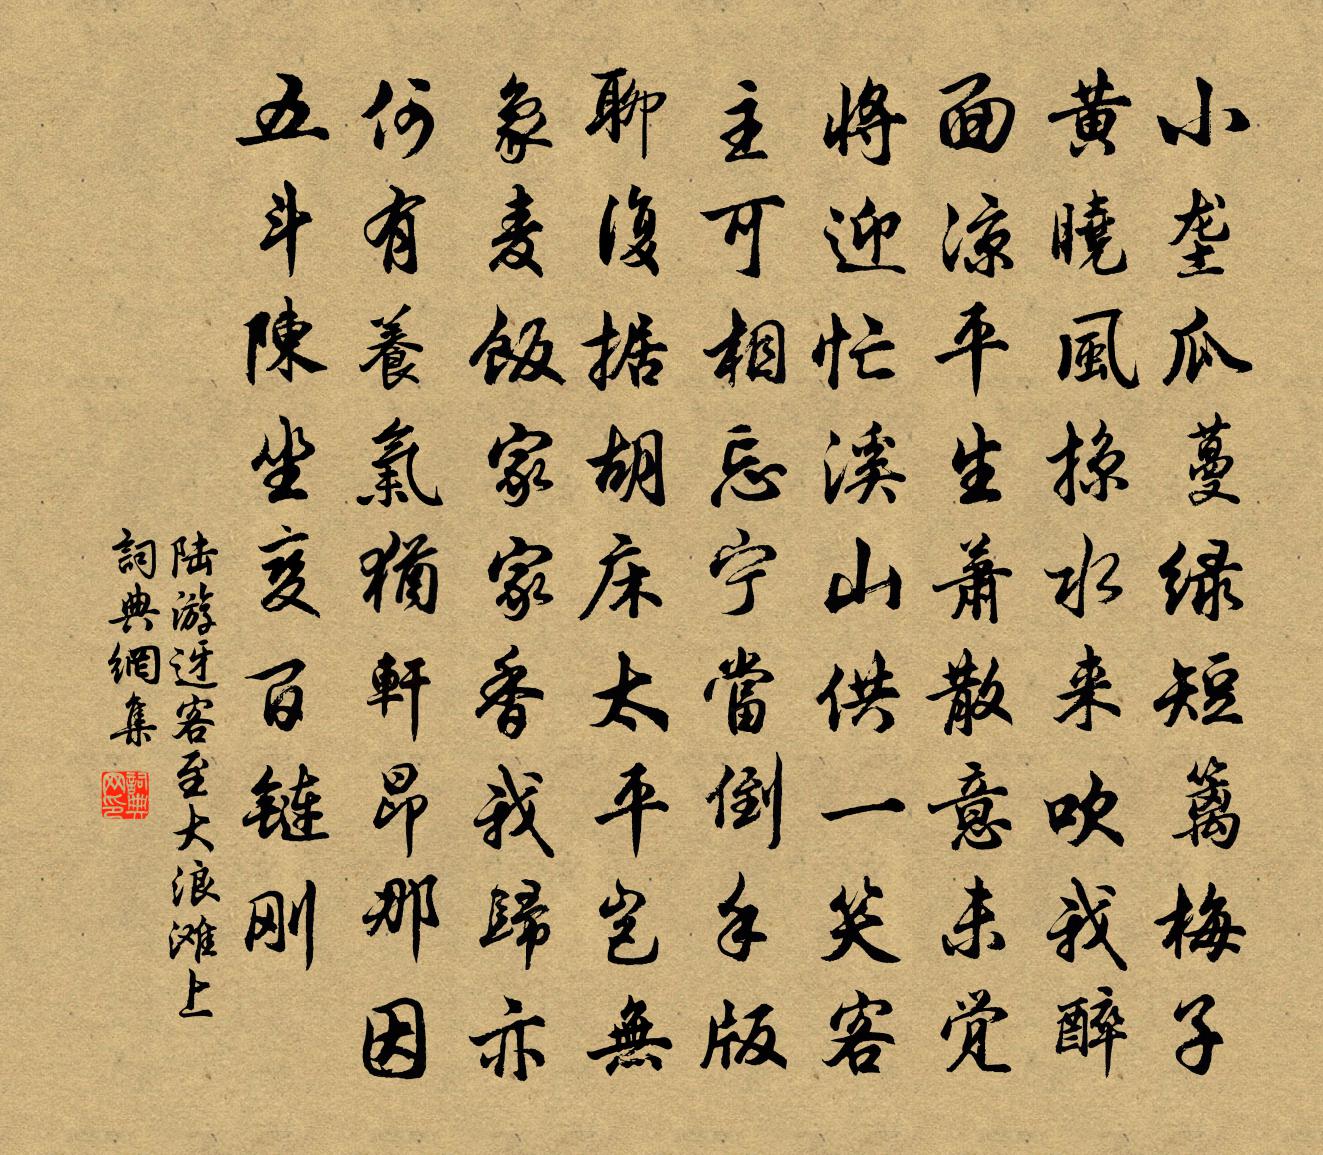 小垄瓜蔓绿短篱梅子
黄曉風掠水来吹我醉
面凉平生萧散意未觉
将迎忙溪山供一笑客
主可相忘宁當倒手版
聊復据胡床太平岂無
象麦飯家家香我歸亦
何有養氣猶軒昂那因
五斗陳坐变百鏈刚
陆游迓客至大浪滩上
詞典網集
詞典网印